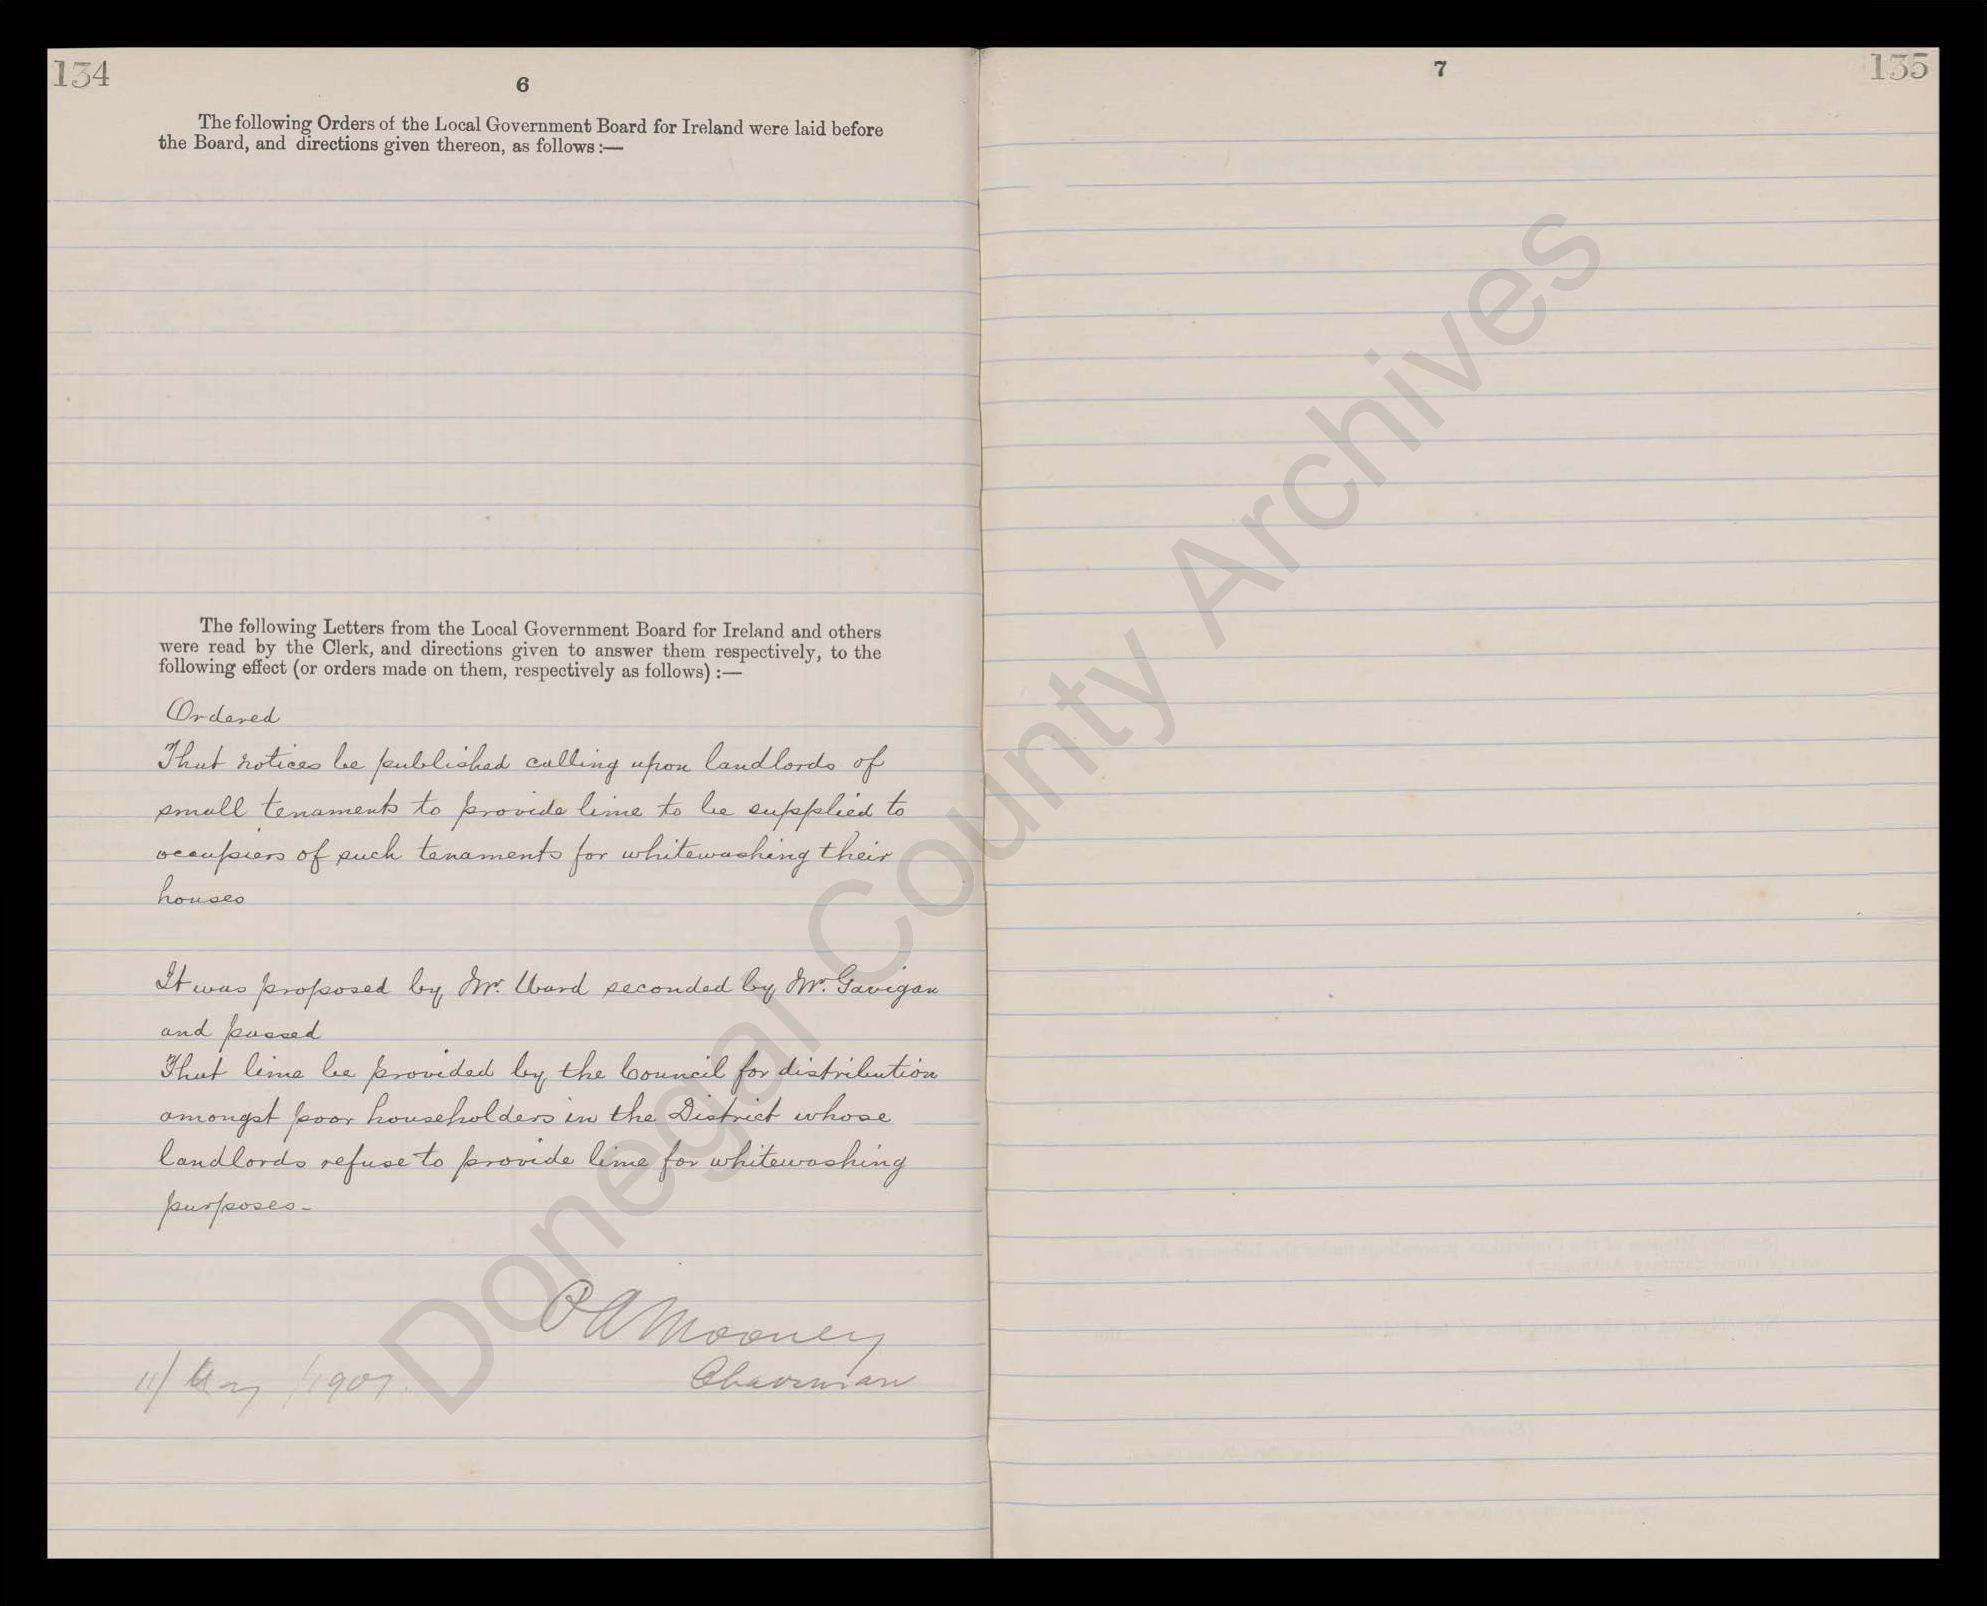 134
6
The following Orders of the Local Government Board for Ireland were laid before
the Board, and directions given thereon, as follows :—
The following Letters from the Local Government Board for Ireland and others
were read by the Clerk, and directions given to answer them respectively, to the
following effect (or orders made on them, respectively as follows) :—
Ordered
That notices be published calling upon landlords of
small tenaments to provide lime to be supplied to
occupiers of such tenaments for whitewashing their
houses
It was proposed by Mr. Ward seconded by Mr. Gavigan
and passed
That lime be provided by the Council for distribution
amongst poor householders in the District whose
landlords refuse to provide lime for whitewashing
purposes-
P A Mooney
Chairman
11/ May /1907.
7
135
Donegal County Archives